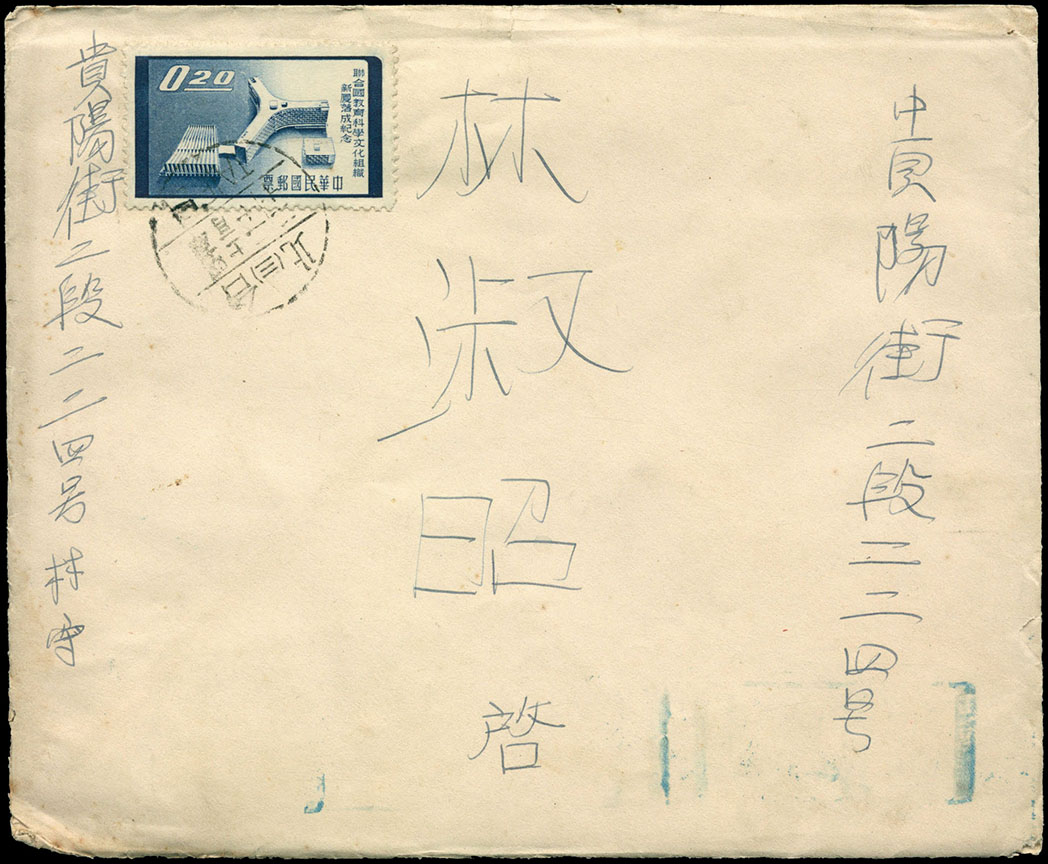 貴陽街二段二二四号
林淑昭啓
貴陽街二段二二四号林
0.20
聯合國教育科學文化組織
新廈落成紀念
中華民國郵票
台(三)北